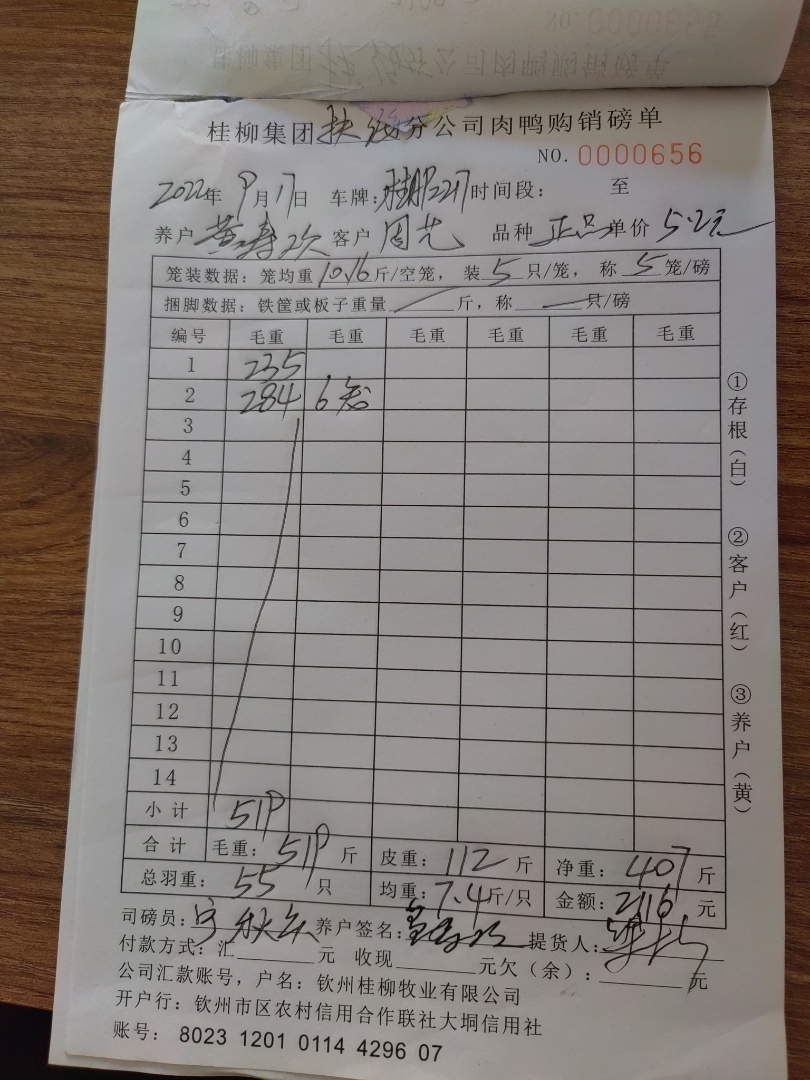 桂柳集团分公司肉鸭购销磅单
NO. 0000656
2022年9月17日 车牌: 时间段: 至
养户 黄寿次 客户 周艺 品种 正品 单价 5.2元
笼装数据: 笼均重10.16斤/空笼, 装5只/笼, 称5笼/磅
捆脚数据: 铁筐或板子重量 斤, 称 只/磅
编号 毛重 毛重 毛重 毛重 毛重 毛重
1 235
2 284 6
3
4
5
6
7
8
9
10
11
12
13
14
小计 519
合计 毛重: 519斤 皮重: 112斤 净重: 407斤
总羽重: 55只 均重: 7.4斤/只 金额: 2116元
司磅员: 养户签名: 黄寿次 提货人:
付款方式: 汇 元 收现 元欠(余): 元
公司汇款账号, 户名: 钦州桂柳牧业有限公司
开户行: 钦州市区农村信用合作联社大垌信用社
账号: 8023 1201 0114 4296 07
①存根(白)
②客户(红)
③养户(黄)